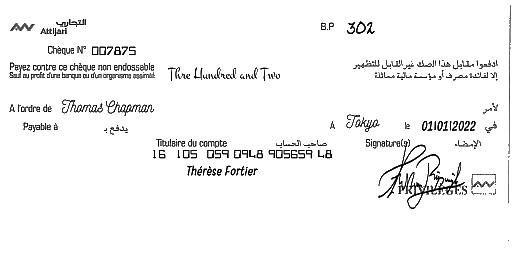 التجاري
Attijari
B.P 302
Chèque N° 007875
Payez contre ce chèque non endossable
Sauf au profit d'une banque ou d'un organisme assimilé
Thre Hundred and Two
ادفعوا مقابل هذا الصك غير القابل للتظهير
إلا لفائدة مصرف أو مؤسسة مالية مماثلة
A l'ordre de Thomas Chapman
لأمر
Payable à
يدفع بـ
A Tokyo le 01/01/2022 في
Titulaire du compte صاحب الحساب
Signature(s) الإمضاء
16 105 059 0948 905659 48
Thérèse Fortier
PRIVILEGES